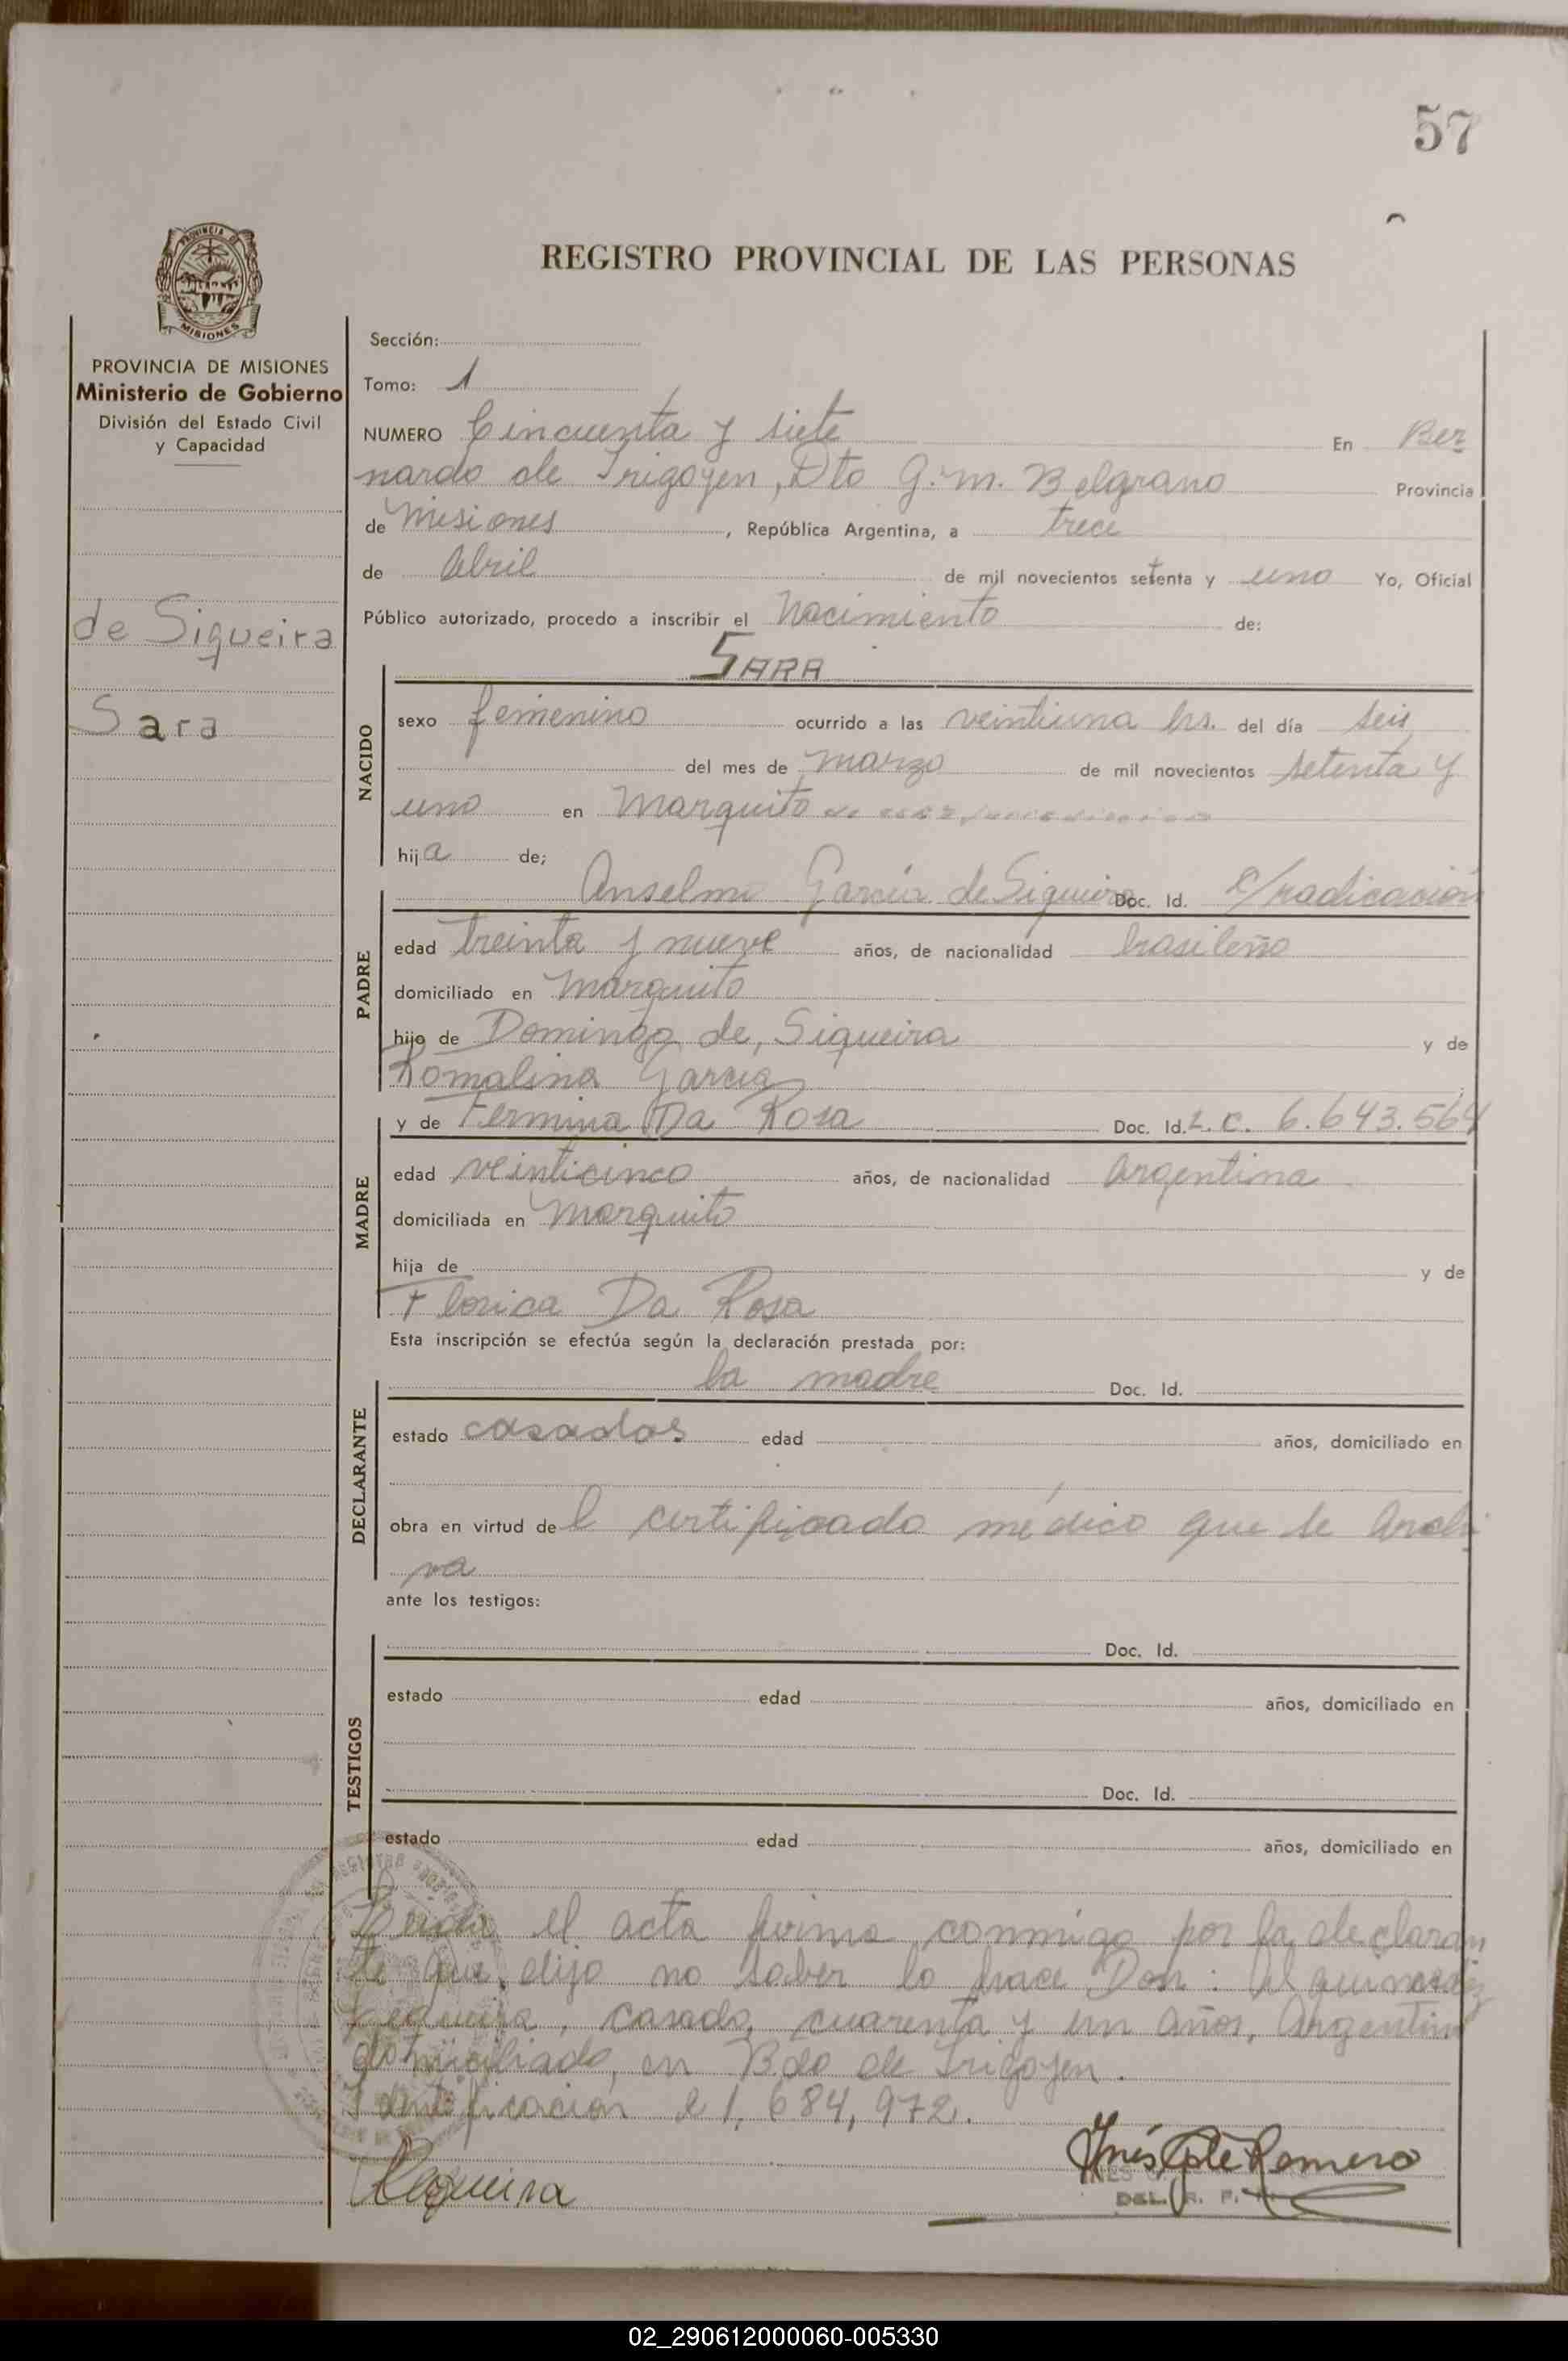 57
REGISTRO PROVINCIAL DE LAS PERSONAS
MISIONES
PROVINCIA DE MISIONES
Ministerio de Gobierno
División del Estado Civil
y Capacidad
de Siqueira
Sara
Sección:
Tomo: 1
NUMERO Cincuenta y siete En Ber
nardo de Irigoyen, Dto G. M. Belgrano Provincia
de Misiones, República Argentina, a trece
de Abril de mil novecientos setenta y uno Yo, Oficial
Público autorizado, procedo a inscribir el Nacimiento de:
SARA
NACIDO
sexo femenino ocurrido a las veintiuna hs. del día seis
del mes de marzo de mil novecientos setenta y
uno en Marquito
hija de;
Anselmo García de Siqueira Doc. Id. c/radicación
PADRE
edad treinta y nueve años, de nacionalidad brasileño
domiciliado en Marquito
hijo de Domingo de Siqueira y de
Romalina Garcia
y de Fermina Da Rosa Doc. Id. L.C. 6.643.564
MADRE
edad veinticinco años, de nacionalidad Argentina
domiciliada en Marquito
hija de y de
Florica Da Rosa
Esta inscripción se efectúa según la declaración prestada por:
la madre Doc. Id.
DECLARANTE
estado casados edad años, domiciliado en
obra en virtud del certificado médico que se archi
va
ante los testigos:
Doc. Id.
TESTIGOS
estado edad años, domiciliado en
Doc. Id.
estado edad años, domiciliado en
el acta firma conmigo por la declaran
te que dijo no saber lo hace Don:
casado, cuarenta y un años, Argentino
domiciliado en Bdo de Irigoyen.
Identificación 1,684,972.
Inés Romero
DEL. R. P.
02_290612000060-005330